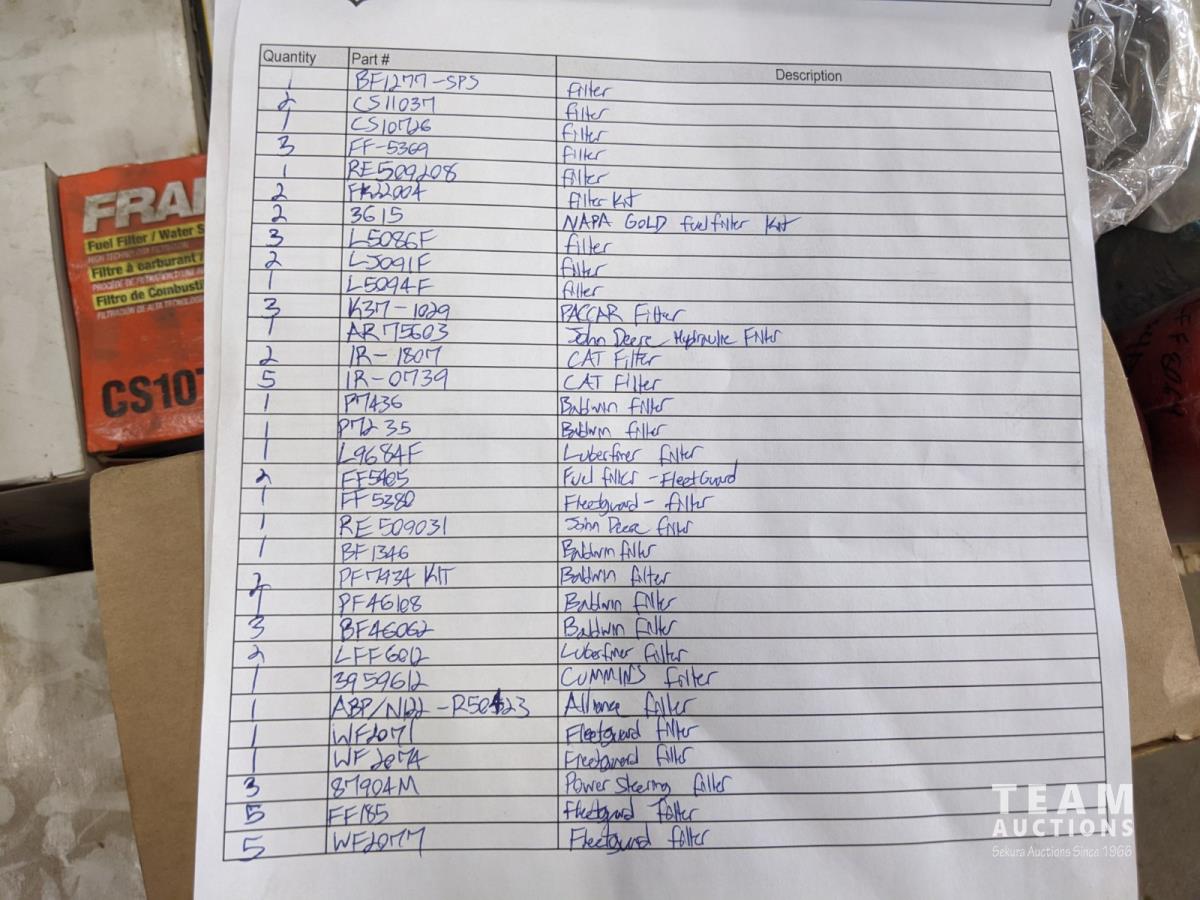 Quantity Part # Description
1 BF1277-SPS filter
2 CS11037 filter
1 CS10726 filter
3 FF-5369 filter
1 RE509208 filter
2 FK22004 filter Kit
2 3615 NAPA GOLD fuel filter Kit
3 L5086F filter
2 L5091F filter
1 L5094F filter
3 K37-1029 PACCAR Filter
1 AR75603 John Deere Hydraulic Filter
2 1R-1807 CAT Filter
5 1R-0739 CAT Filter
1 P7436 Baldwin filter
1 P7235 Baldwin filter
1 L9684F Luberfiner filter
2 FF5405 Fuel filter - FleetGuard
1 FF5380 Fleetguard - filter
1 RE509031 John Deere filter
1 BF1346 Baldwin filter
2 PF7934 KIT Baldwin filter
1 PF46108 Baldwin filter
3 BF46062 Baldwin Filter
2 LFF6012 Luberfiner filter
1 3959612 CUMMINS filter
1 ABP/N122-R50423 Alliance filter
1 WF2071 Fleetguard filter
1 WF2074 Fleetguard filter
3 87904M Power Steering filter
5 FF185 Fleetguard filter
5 WF2077 Fleetguard filter
FRAM
Fuel Filter / Water S
HIGH TECHNOLOGY FILTRATION
Filtre à carburant /
PROCÉDÉ DE FILTRATION D'UNE HA
Filtro de Combusti
FILTRACIÓN DE ALTA TECNOLOGÍA
CS107
TEAM
AUCTIONS
Sekura Auctions Since 1966